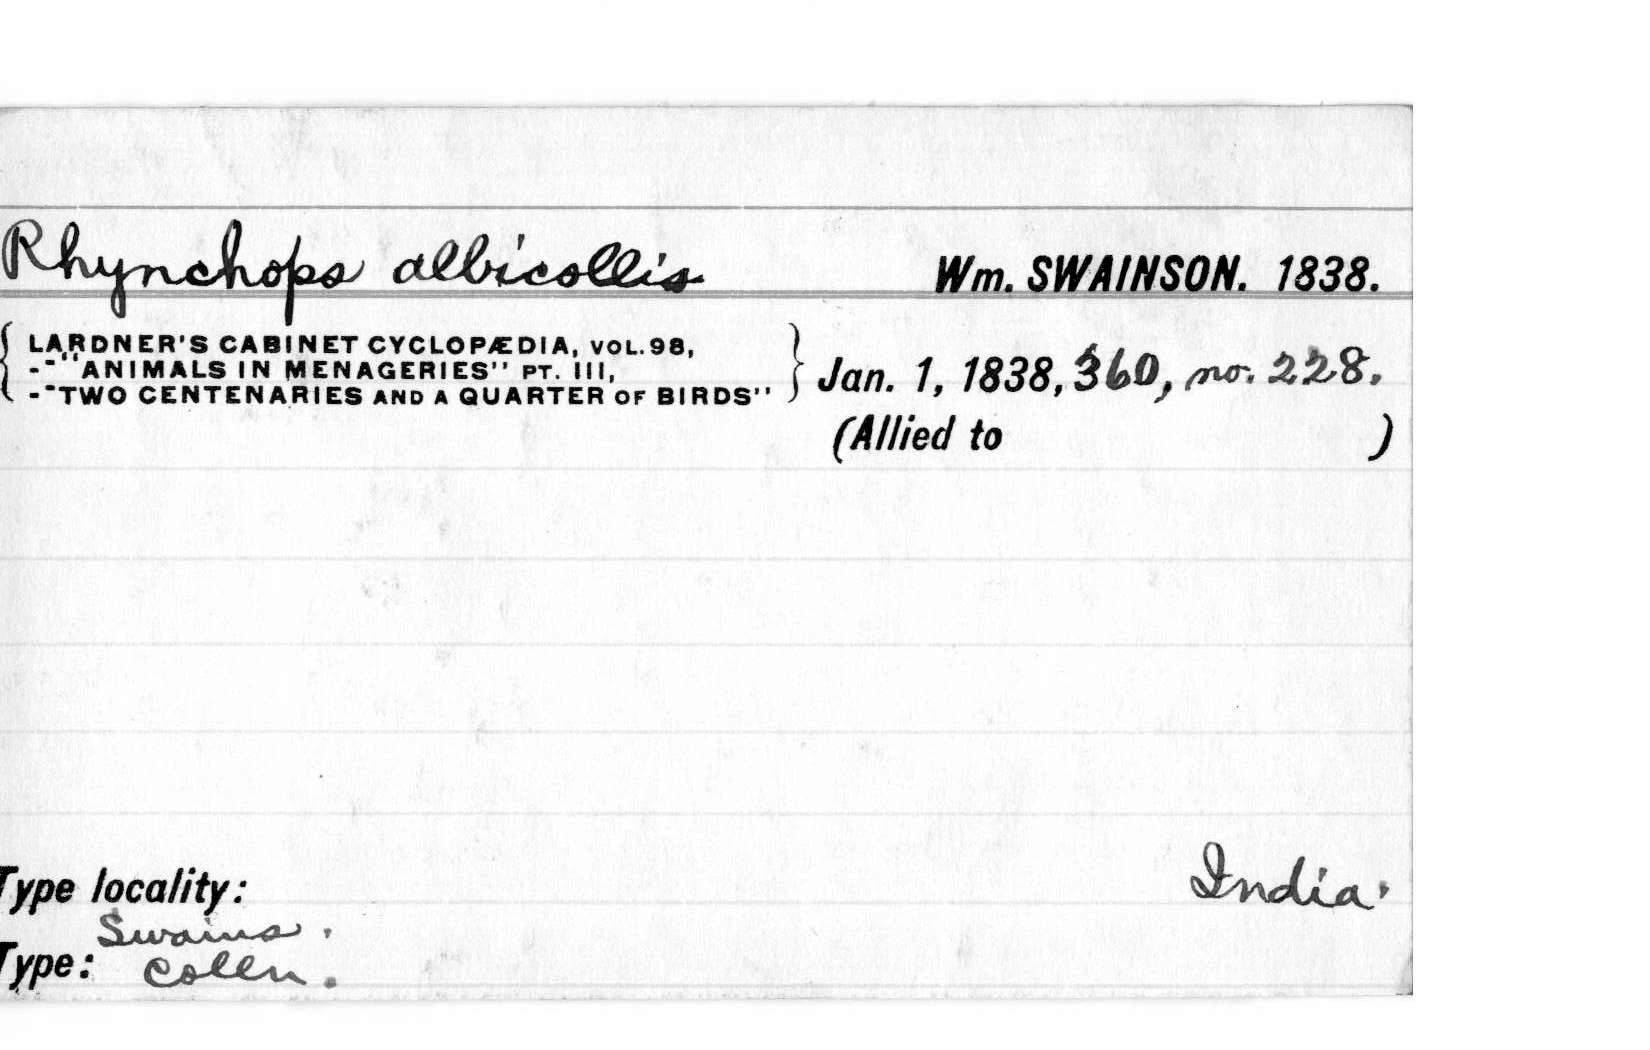 Rhynchops albicollis Wm. SWAINSON. 1838.
LARDNER'S CABINET CYCLOPÆDIA, VOL.98,
-"-"ANIMALS IN MENAGERIES" PT. III,
-"-"TWO CENTENARIES AND A QUARTER OF BIRDS"
Jan. 1, 1838, 360, no. 228.
(Allied to )
Type locality: India.
Swains.
Type: Colln.